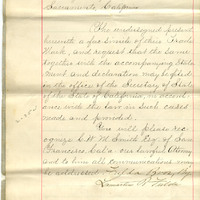 Sacramento California
The undersigned present
herewith a fac-simile of their Trade
Mark, and request that the same
together with the accompanying State
ment and declaration may be filed
in the office of the Secretary of State
of the State of California in accord
ance with the law in such cases
made and provided.
You will please rec
ognize C. W. M. Smith Esq of San
Francisco, Cal. our lawful Attorney
and to him all communications may
be addressed.